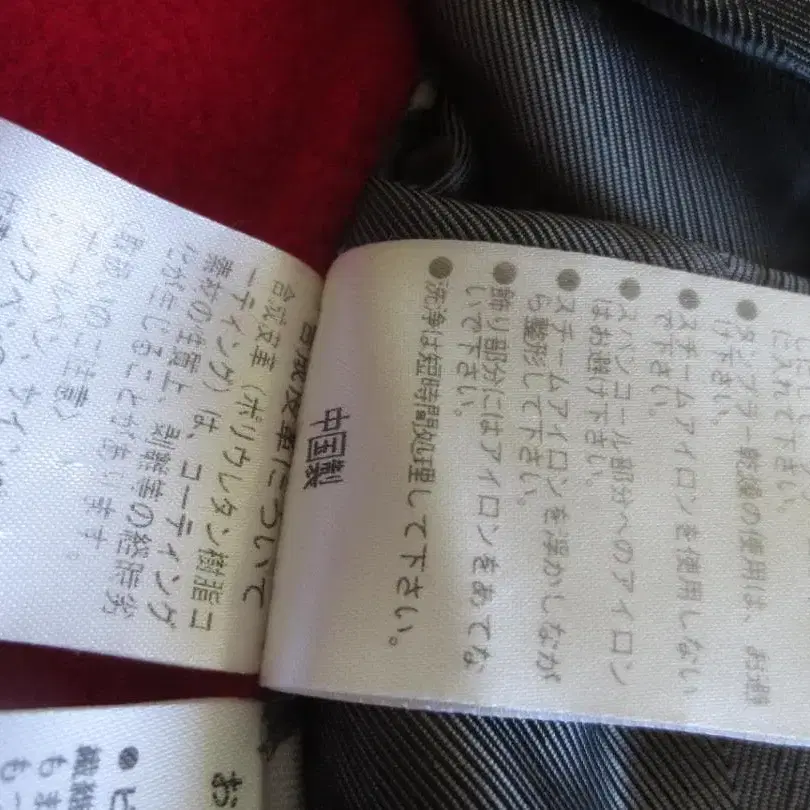 に入れて下さい。
●タンブラー乾燥の使用は、お避
け下さい。
●スチームアイロンを使用しない
で下さい。
●スパンコール部分へのアイロン
はお避け下さい。
●スチームアイロンを浮かしなが
ら整形して下さい。
●飾り部分にはアイロンをあてな
いで下さい。
●洗浄は短時間処理して下さい。
中国製
合成皮革について
合成皮革(ポリウレタン樹脂コ
ーティング)は、コーティング
素材の性質上、剥離等の経時劣
化が生じることがあります。
(取扱いのご注意)
お
繊維